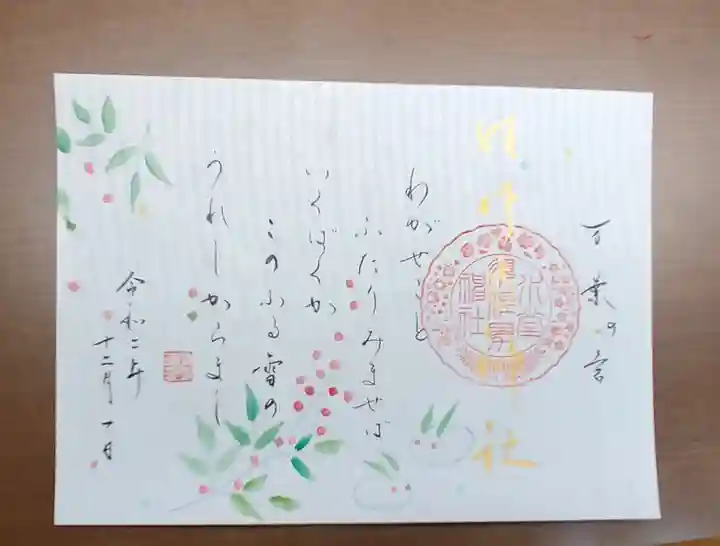 万葉の宮
わがせこと
ふたりみませば
いくばくか
このふる雪の
うれしからまし
令和二年
十二月一日